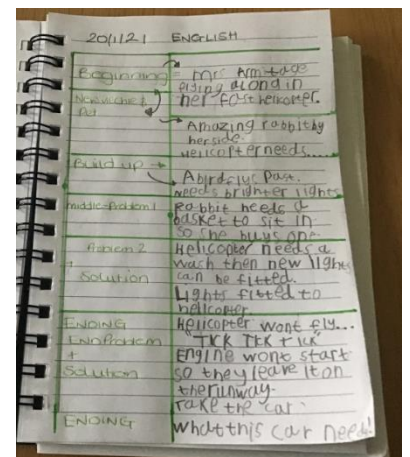 20/1/21 ENGLISH
Beginning = Mrs Armitage
flying along in
New vehicle & her fast helicopter.
Pet
Amazing rabbit by
her side.
Helicopter needs....
Build up → A bird flys past.
needs brighter lights
middle-Problem 1 Rabbit needs a
basket to sit in
so she buys one.
Problem 2 Helicopter needs a
+ wach then new lights
Solution can be fitted.
Lights fitted to
helicopter.
ENDING Helicopter wont fly...
END Problem "TICK TICK tick"
+ Engine wont start
Solution so they leave it on
the runway.
Take the car.
ENDING What this car needs!